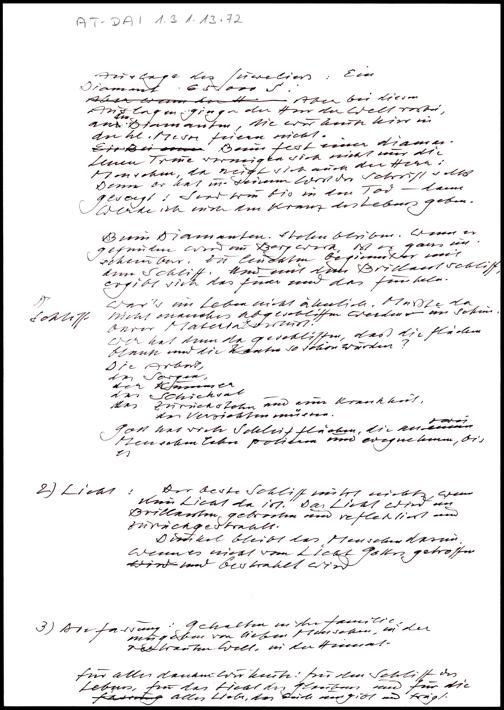 AT-DAI 1.3 1.13.72
Auslage des Juweliers: Ein
Diamant 65000 S!
Aber wenn der H Aber bei diesen
Auslagen ginge der Herr der Welt vorbei,
aus Diamanten, die wir heute hier in
der hl. Messe feiern nicht.
Beim Fest einer diaman-
tenen Treue vereinigen sich nicht nur die
Menschen, da neigt sich auch der Herr:
Denn er hat in seinem Wort der Schrift selbst
gesagt: Sei treu bis in den Tod – dann
werde ich mich den Kranz des Lebens geben.
Beim Diamanten. Stehn bleiben. Wenn er
gefunden wird im Bergwerk, ist er ganz un-
scheinbar. Zu leuchten beginnt er mit
dem Schliff. Und mit dem Brillantschliff,
ergibt sich das Feuer und das Funkeln.
1)
Schliff.
War's im Leben nicht ähnlich. Mußte da
nicht manches abgeschliffen werden
Wer hat denn da geschliffen, dass die Flächen
blank und die Kanten so schön würden?
Die Arbeit,
das Sorgen,
der Kummer
das Schicksal
das Zurückstehn und eine Krankheit,
das Verzichten müssen.
Gott hat viele Schleifflächen, die
Menschenleben polieren und
er
2) Licht: Der beste Schliff nützt nichts, wenn
kein Licht da ist. Das Licht wird im
Brillanten gebrochen und reflektiert und
zurückgestrahlt.
Dunkel bleibt das Menschendasein,
wenn es nicht vom Licht Gottes getroffen
wird und bestrahlt wird
3) Die Fassung: Gehalten in der Familie,
umgeben von lieben Menschen, in der
vertrauten Welt, in der Heimat.
Für alles danken wir heute: für den Schliff des
Lebens, für das Licht des Glaubens und für die
Fassung alles Liebe, das Euch umgibt und trägt.